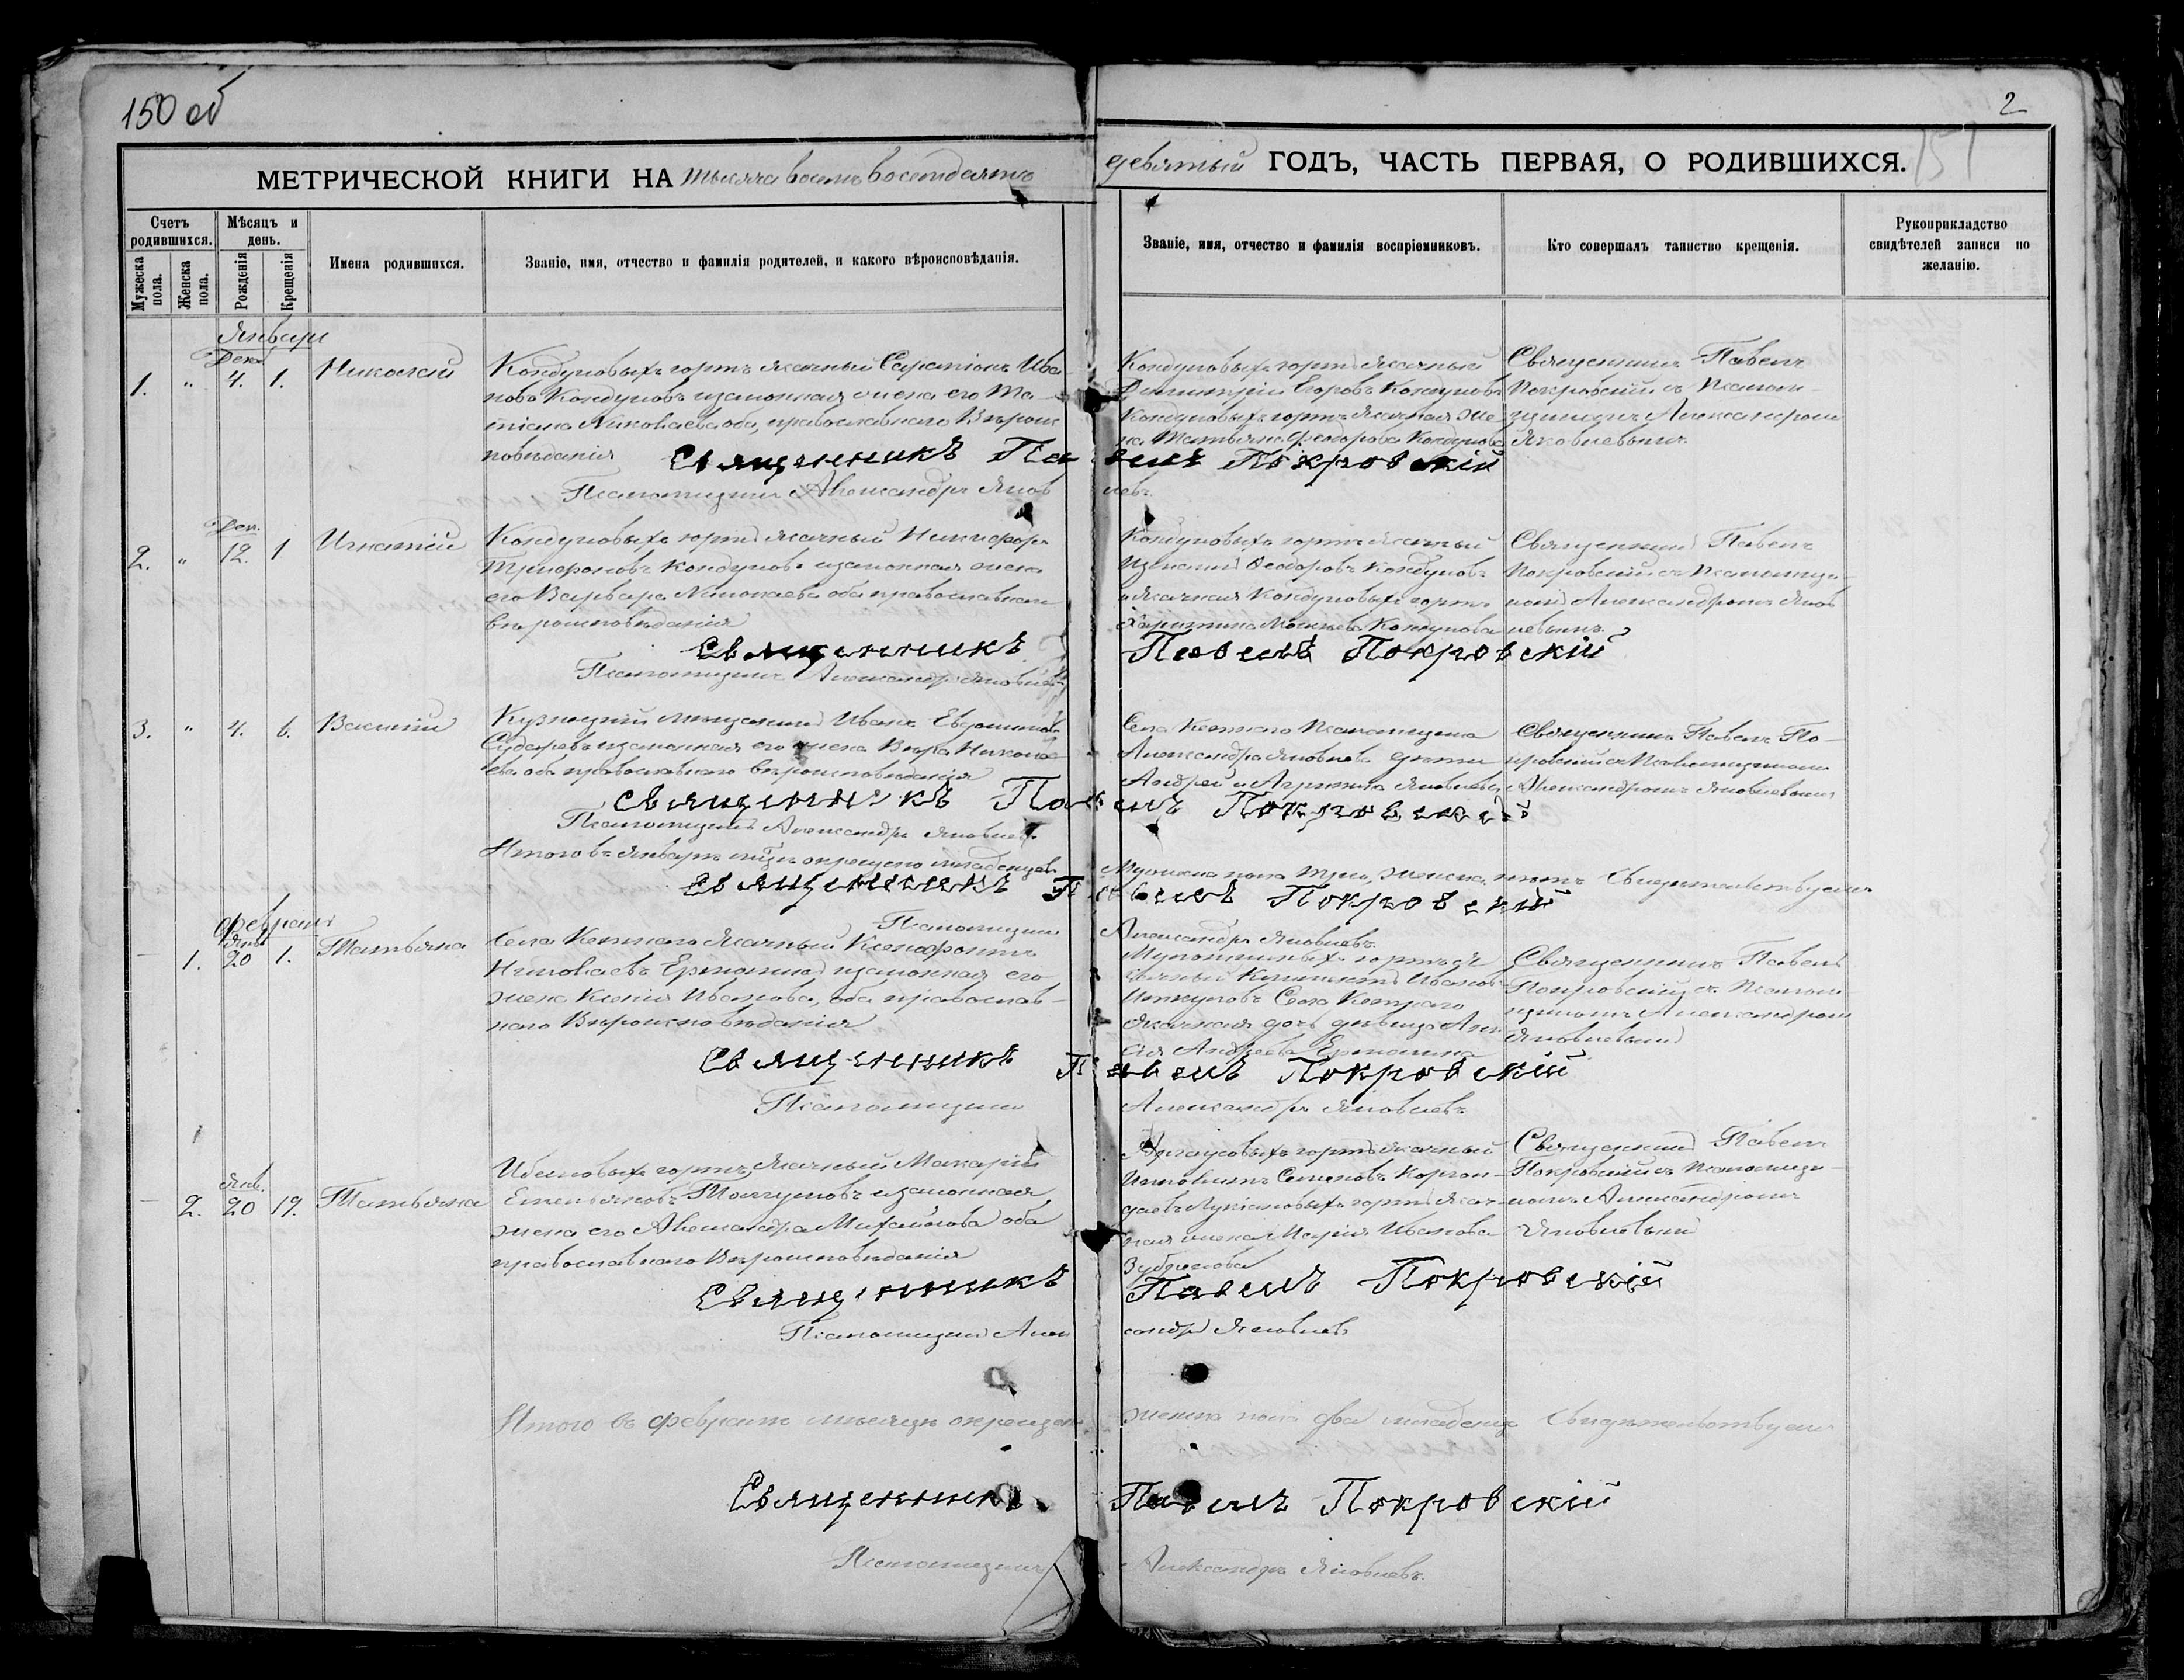 150 об
2
МЕТРИЧЕСКОЙ КНИГИ НА тысяча восемь восемдесятъ девятый ГОДЪ, ЧАСТЬ ПЕРВАЯ, О РОДИВШИХСЯ.
Счетъ родившихся.
Мужеска пола.
Женска пола.
Мѣсяцъ и день.
Рожденія
Крещенія
Имена родившихся.
Званіе, имя, отчество и фамилія родителей, и какого вѣроисповѣданія.
Званіе, имя, отчество и фамилія воспріемниковъ.
Кто совершалъ таинство крещенія.
Рукоприкладство свидѣтелей записи по желанію.
Январь
Декаб
1. " 4. 1. Николай
Кондуковыхъ юртъ ясачный Серапіонъ Ива
новъ Кондуковъ и законная жена его Та
тіана Николаева оба, православнаго Вѣроис
повѣданія
Кондуковыхъ юртъ ясачный
Димитрій Егоровъ Кондуковъ
Кондуковыхъ юртъ ясачная же
на Татьяна Феодорова Кондукова
Священникъ Павелъ
Покровскій съ Псалом
щикомъ Александромъ
Яковлевымъ
Священникъ Павелъ Покровскій
Псаломщикъ Александръ Яковлевъ
Дек.
2. " 12. 1 Игнатій
Кондуковыхъ юртъ ясачный Никифоръ
Трифоновъ Кондуковъ и законная жена
его Варвара Николаева оба православнаго
вѣроисповѣданія
Кондуковыхъ юртъ ясачный
Феодоровъ Кондуковъ
и ясачная Кондуковыхъ юртъ
Кондукова
Священникъ Павелъ
Покровскій съ Псаломщи
комъ Александромъ Яков
левымъ
Священникъ Павелъ Покровскій
Псаломщикъ Александръ Яковлевъ
3. " 4. 6. Василій
Кузнецкій мѣщанинъ Иванъ Евдокимовъ
и законная его жена Вѣра Никола
ева оба православнаго вѣроисповѣданія
Села Кетнаго Псаломщика
Александра Яковлева дѣти
Андрей и Яковлевы
Священникъ Павелъ По
кровскій съ Псаломщикомъ
Александромъ Яковлевымъ
Священникъ Павелъ Покровскій
Псаломщикъ Александръ Яковлевъ
Итого въ Январѣ м-цѣ окрещено младенцевъ Мужеска пола три, женска нѣтъ Свидѣтельствуемъ
Священникъ Павелъ Покровскій
Псаломщикъ Александръ Яковлевъ
Февраль
Янв
- 1. 20 1. Татьяна
Села Кетнаго ясачный Ксенофонтъ
Николаевъ Ермолинъ и законная его
жена Ксенія Иванова, оба православ
наго Вѣроисповѣданія
юртъ
Ивановъ
Села Кетнаго
Ясачная дочь дѣвица
Андреева Ермолина
Священникъ Павелъ
Покровскій съ Псалом
щикомъ Александромъ
Яковлевымъ
Священникъ Павелъ Покровскій
Псаломщикъ Александръ Яковлевъ
Янв.
- 2. 20 19. Татьяна
юртъ Ясачный Макарій
Емельяновъ и законная
жена его Александра Михайлова оба
православнаго Вѣроисповѣданія
юртъ ясачный
Семеновъ
Лукіановыхъ юртъ ясач
ная жена Марія Иванова
Священникъ Павелъ
Покровскій съ Псаломщи
комъ Александромъ
Яковлевымъ
Священникъ Павелъ Покровскій
Псаломщикъ Александръ Яковлевъ
Итого въ Февралѣ мѣсяцѣ окрещено женска пола два младенца Свидѣтельствуемъ
Священникъ Павелъ Покровскій
Псаломщикъ Александръ Яковлевъ.